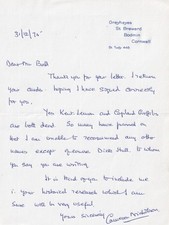 St Breward
Bodmin
Cornwall
Dear Mr Ball
Thank you for your letter. I return
your cards hoping I have signed correctly
for you.
You Kevin Lewan and Copland Griffiths
are both dead. So many have passed on
that I am unable to recommend any other
names except of course Dick Hull to whom
you say you are writing.
It is kind of you to include me
in your historical research which I am
sure will be very useful.
Yours sincerely